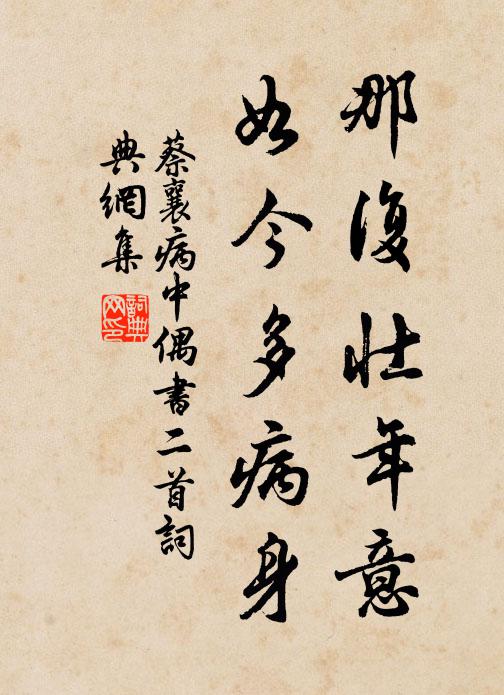 那復壯年意
如今多病身
蔡襄病中偶書二首詞
典網集
詞典
网印